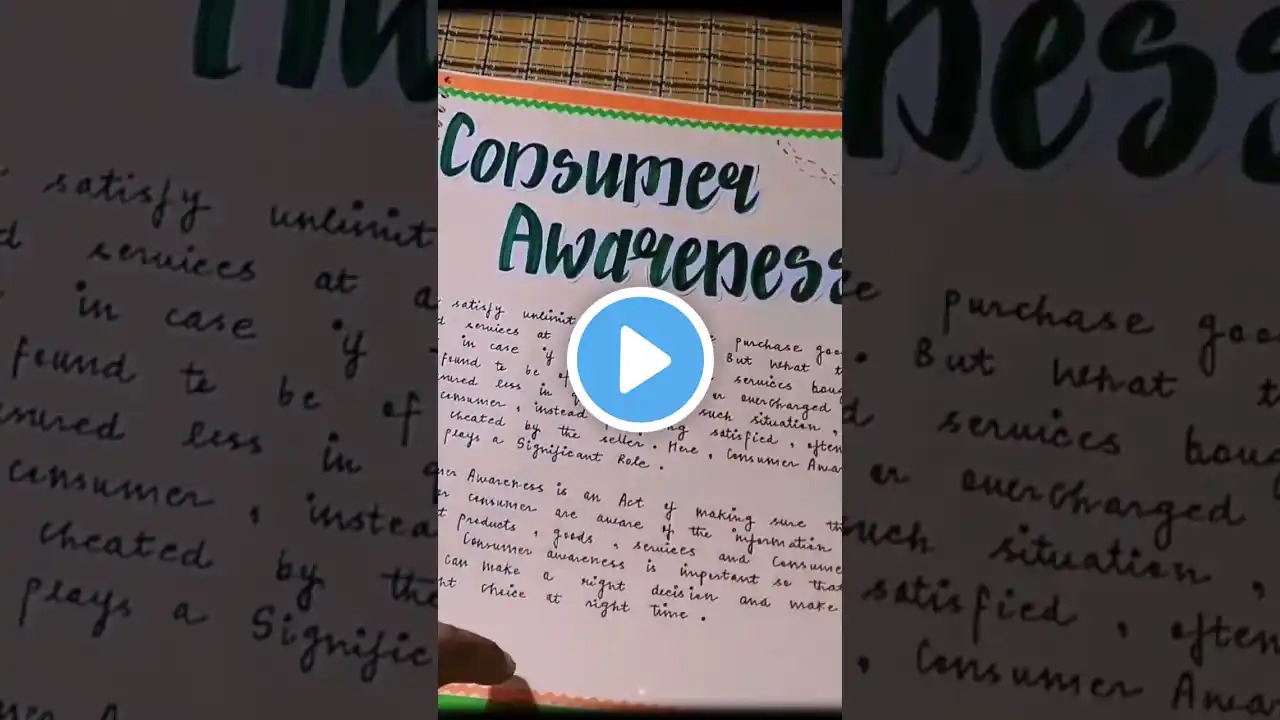 Consumer
Awareness
satisfy unlimit purchase goo
d services at But what t
in case if services boug
found to be of or overcharged
sured less in such situation,
consumer, instead satisfied, often
cheated by the seller. Here, Consumer Awa
plays a Significant Role.
mer Awareness is an Act of making sure th
er consumer are aware of the information
t products, goods, services and Consume
Consumer awareness is important so that
can make a right decision and make
ht choice at right time.